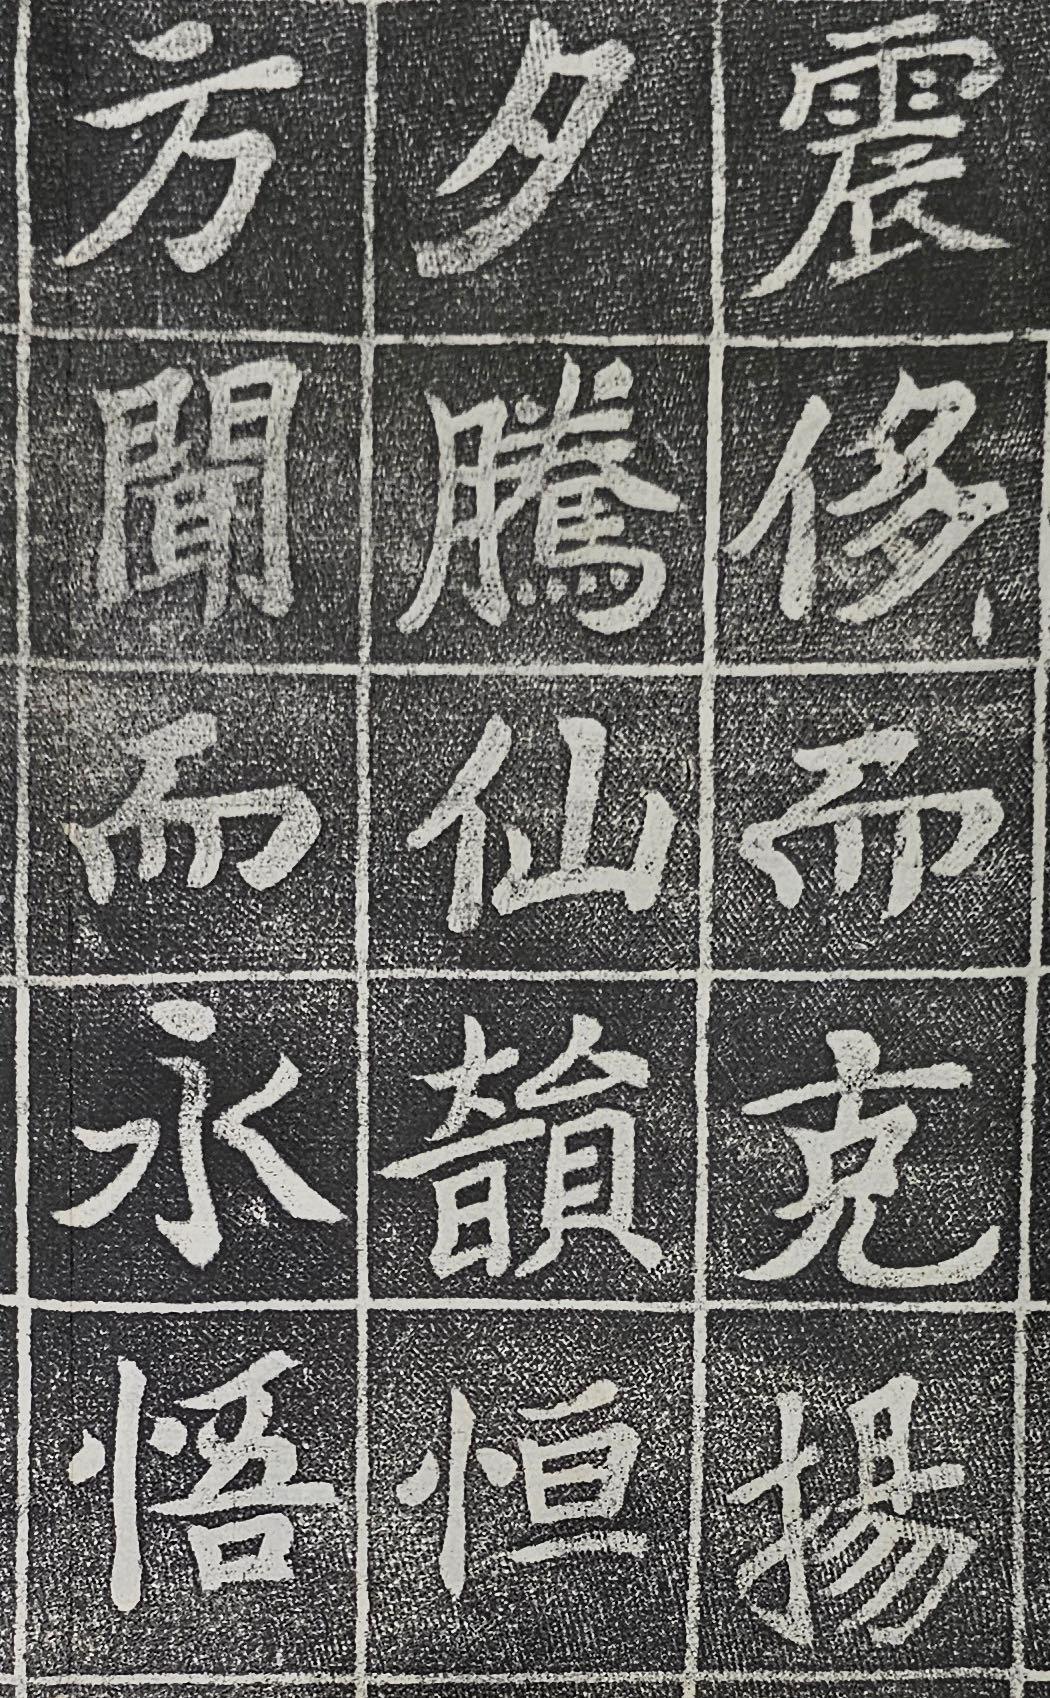 震侈而克揚
夕騰仙韻恒
方聞而永悟